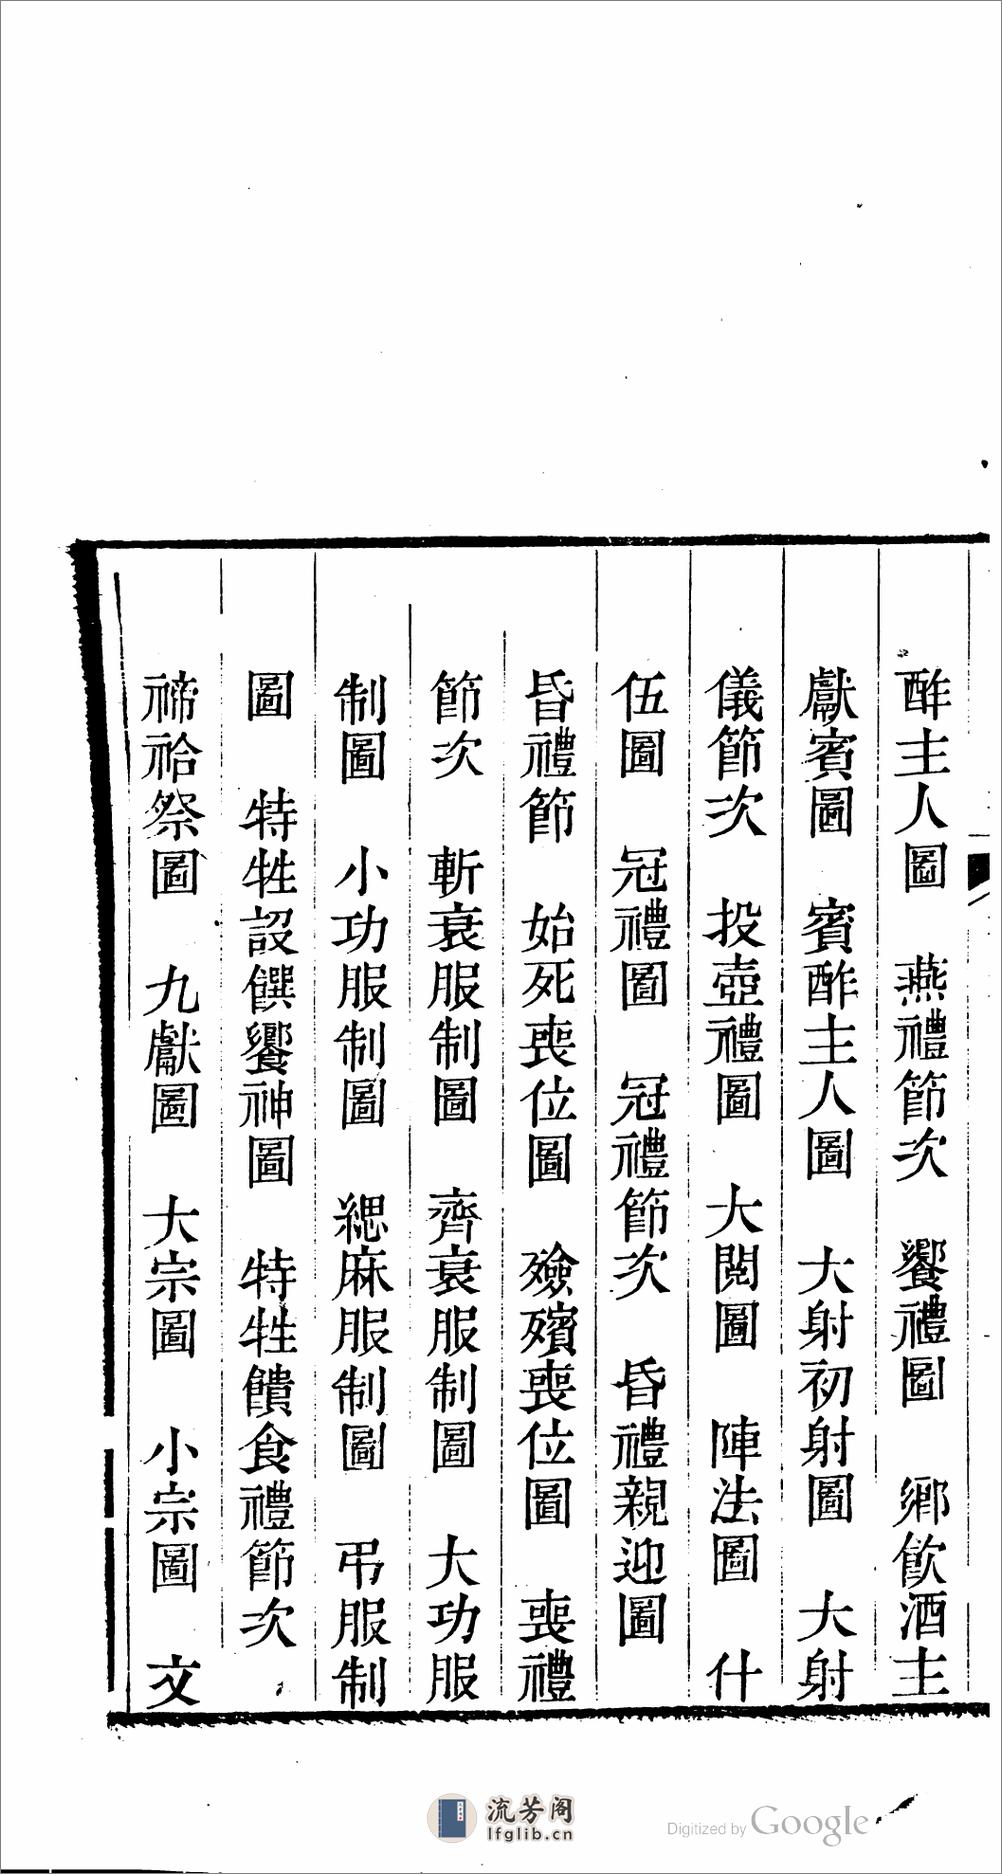 酢主人圖　燕禮節次　饗禮圖　鄉飲酒主
獻賓圖　賓酢主人圖　大射初射圖　大射
儀節次　投壺禮圖　大閱圖　陣法圖　什
伍圖　冠禮圖　冠禮節次　昏禮親迎圖
昏禮節　始死喪位圖　殮殯喪位圖　喪禮
節次　斬衰服制圖　齊衰服制圖　大功服
制圖　小功服制圖　緦麻服制圖　弔服制
圖　特牲設饌饗神圖　特牲饋食禮節次
禘祫祭圖　九獻圖　大宗圖　小宗圖　文
流芳阁
lfglib.cn
Digitized by Google